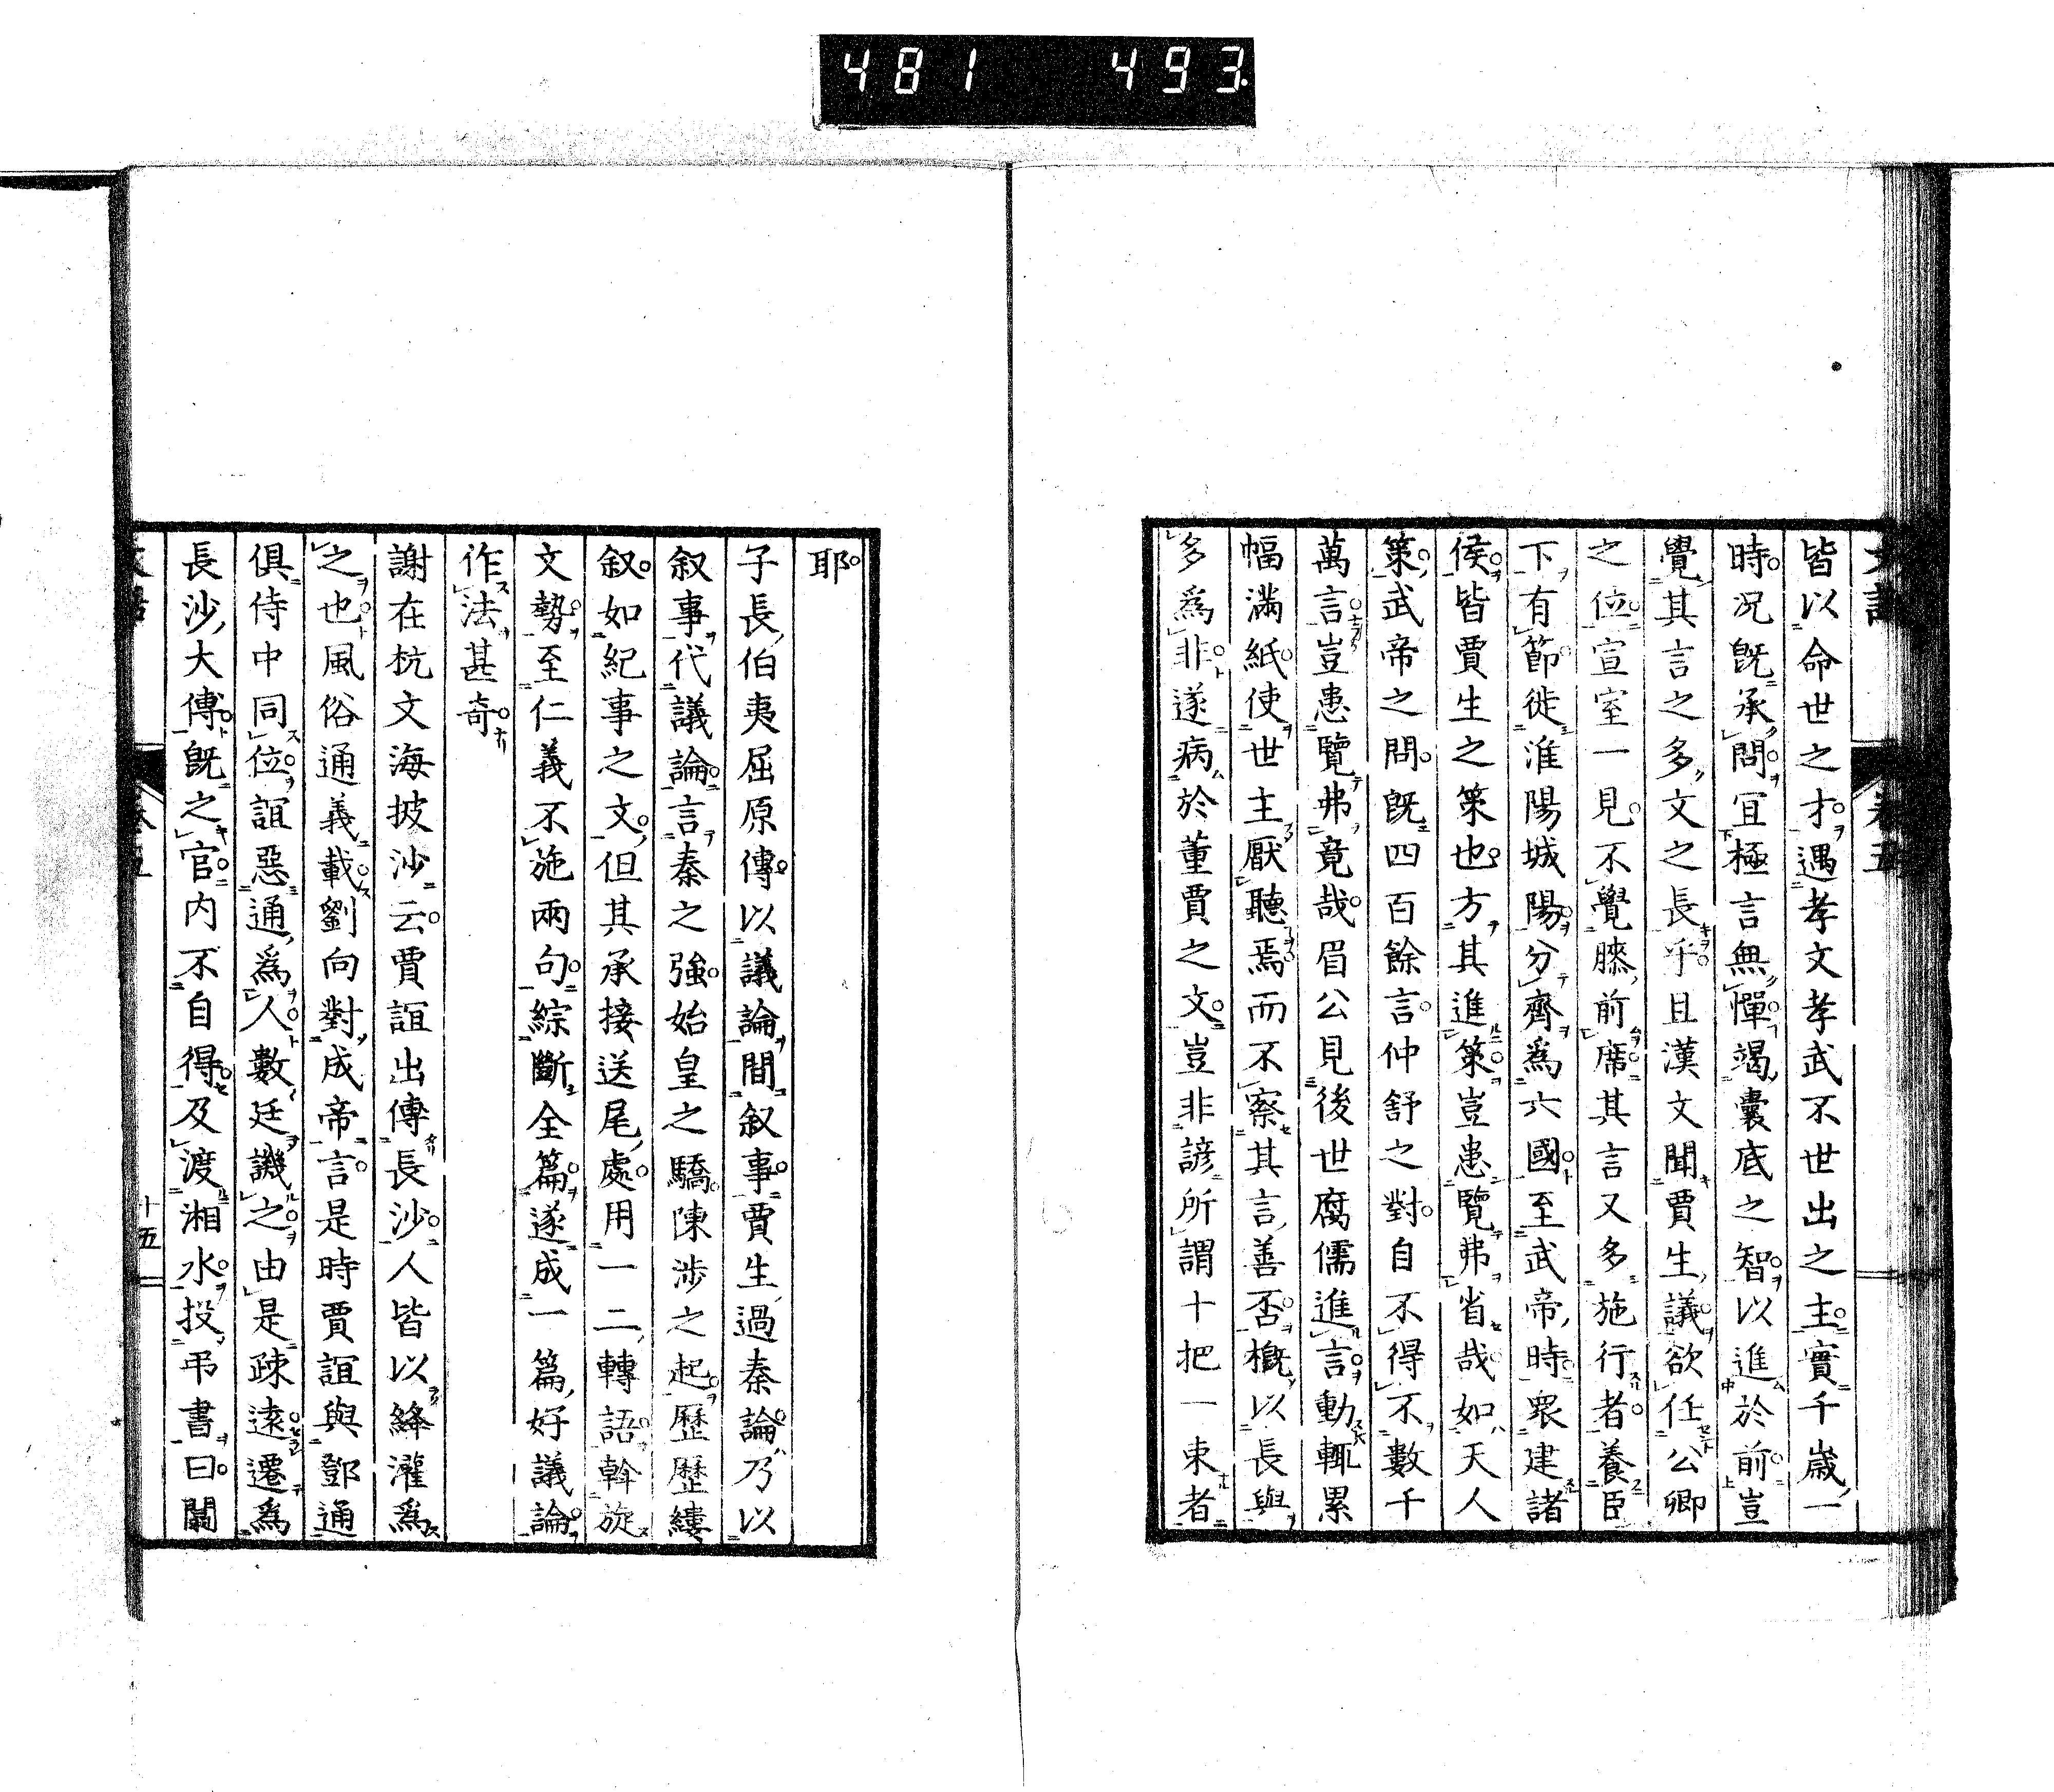 481 493
皆以命世之才。遇孝文孝武不世出之主。實千歲一
時。況既承問。宜極言無憚。竭囊底之智。以進於前。豈
覺其言之多、文之長乎。且漢文聞賈生議。欲任公卿
之位。宣室一見。不覺膝前席。其言又多施行者。養臣
下有節。徙淮陽城陽。分齊為六國。至武帝時。眾建諸
侯。皆賈生之策也。方其進策。豈患覽弗省哉。如天人
策、武帝之問。既四百餘言。仲舒之對。自不得不數千
萬言。豈患覽弗竟哉。眉公見後世腐儒進言。動輒累
幅滿紙。使世主厭聽焉。而不察其言善否。概以長與
多為非。遂病於董賈之文。豈非諺所謂十把一束者
耶。
子長伯夷屈原傳。以議論間叙事。賈生過秦論。乃以
叙事代議論。言秦之強。始皇之驕。陳涉之起。歷歷縷
叙。如紀事之文。但其承接送尾處。用一二轉語。斡旋
文勢。至仁義不施兩句。綜斷全篇。遂成一篇好議論。
作法甚奇。
謝在杭文海披沙云。賈誼出傳長沙。人皆以絳灌為
之也。風俗通義載劉向對成帝言。是時賈誼與鄧通
俱侍中同位。誼惡通為人。數廷譏之。由是疎遠。遷為
長沙大傳。既之官。內不自得。及渡湘水。投弔書曰。闒
十五